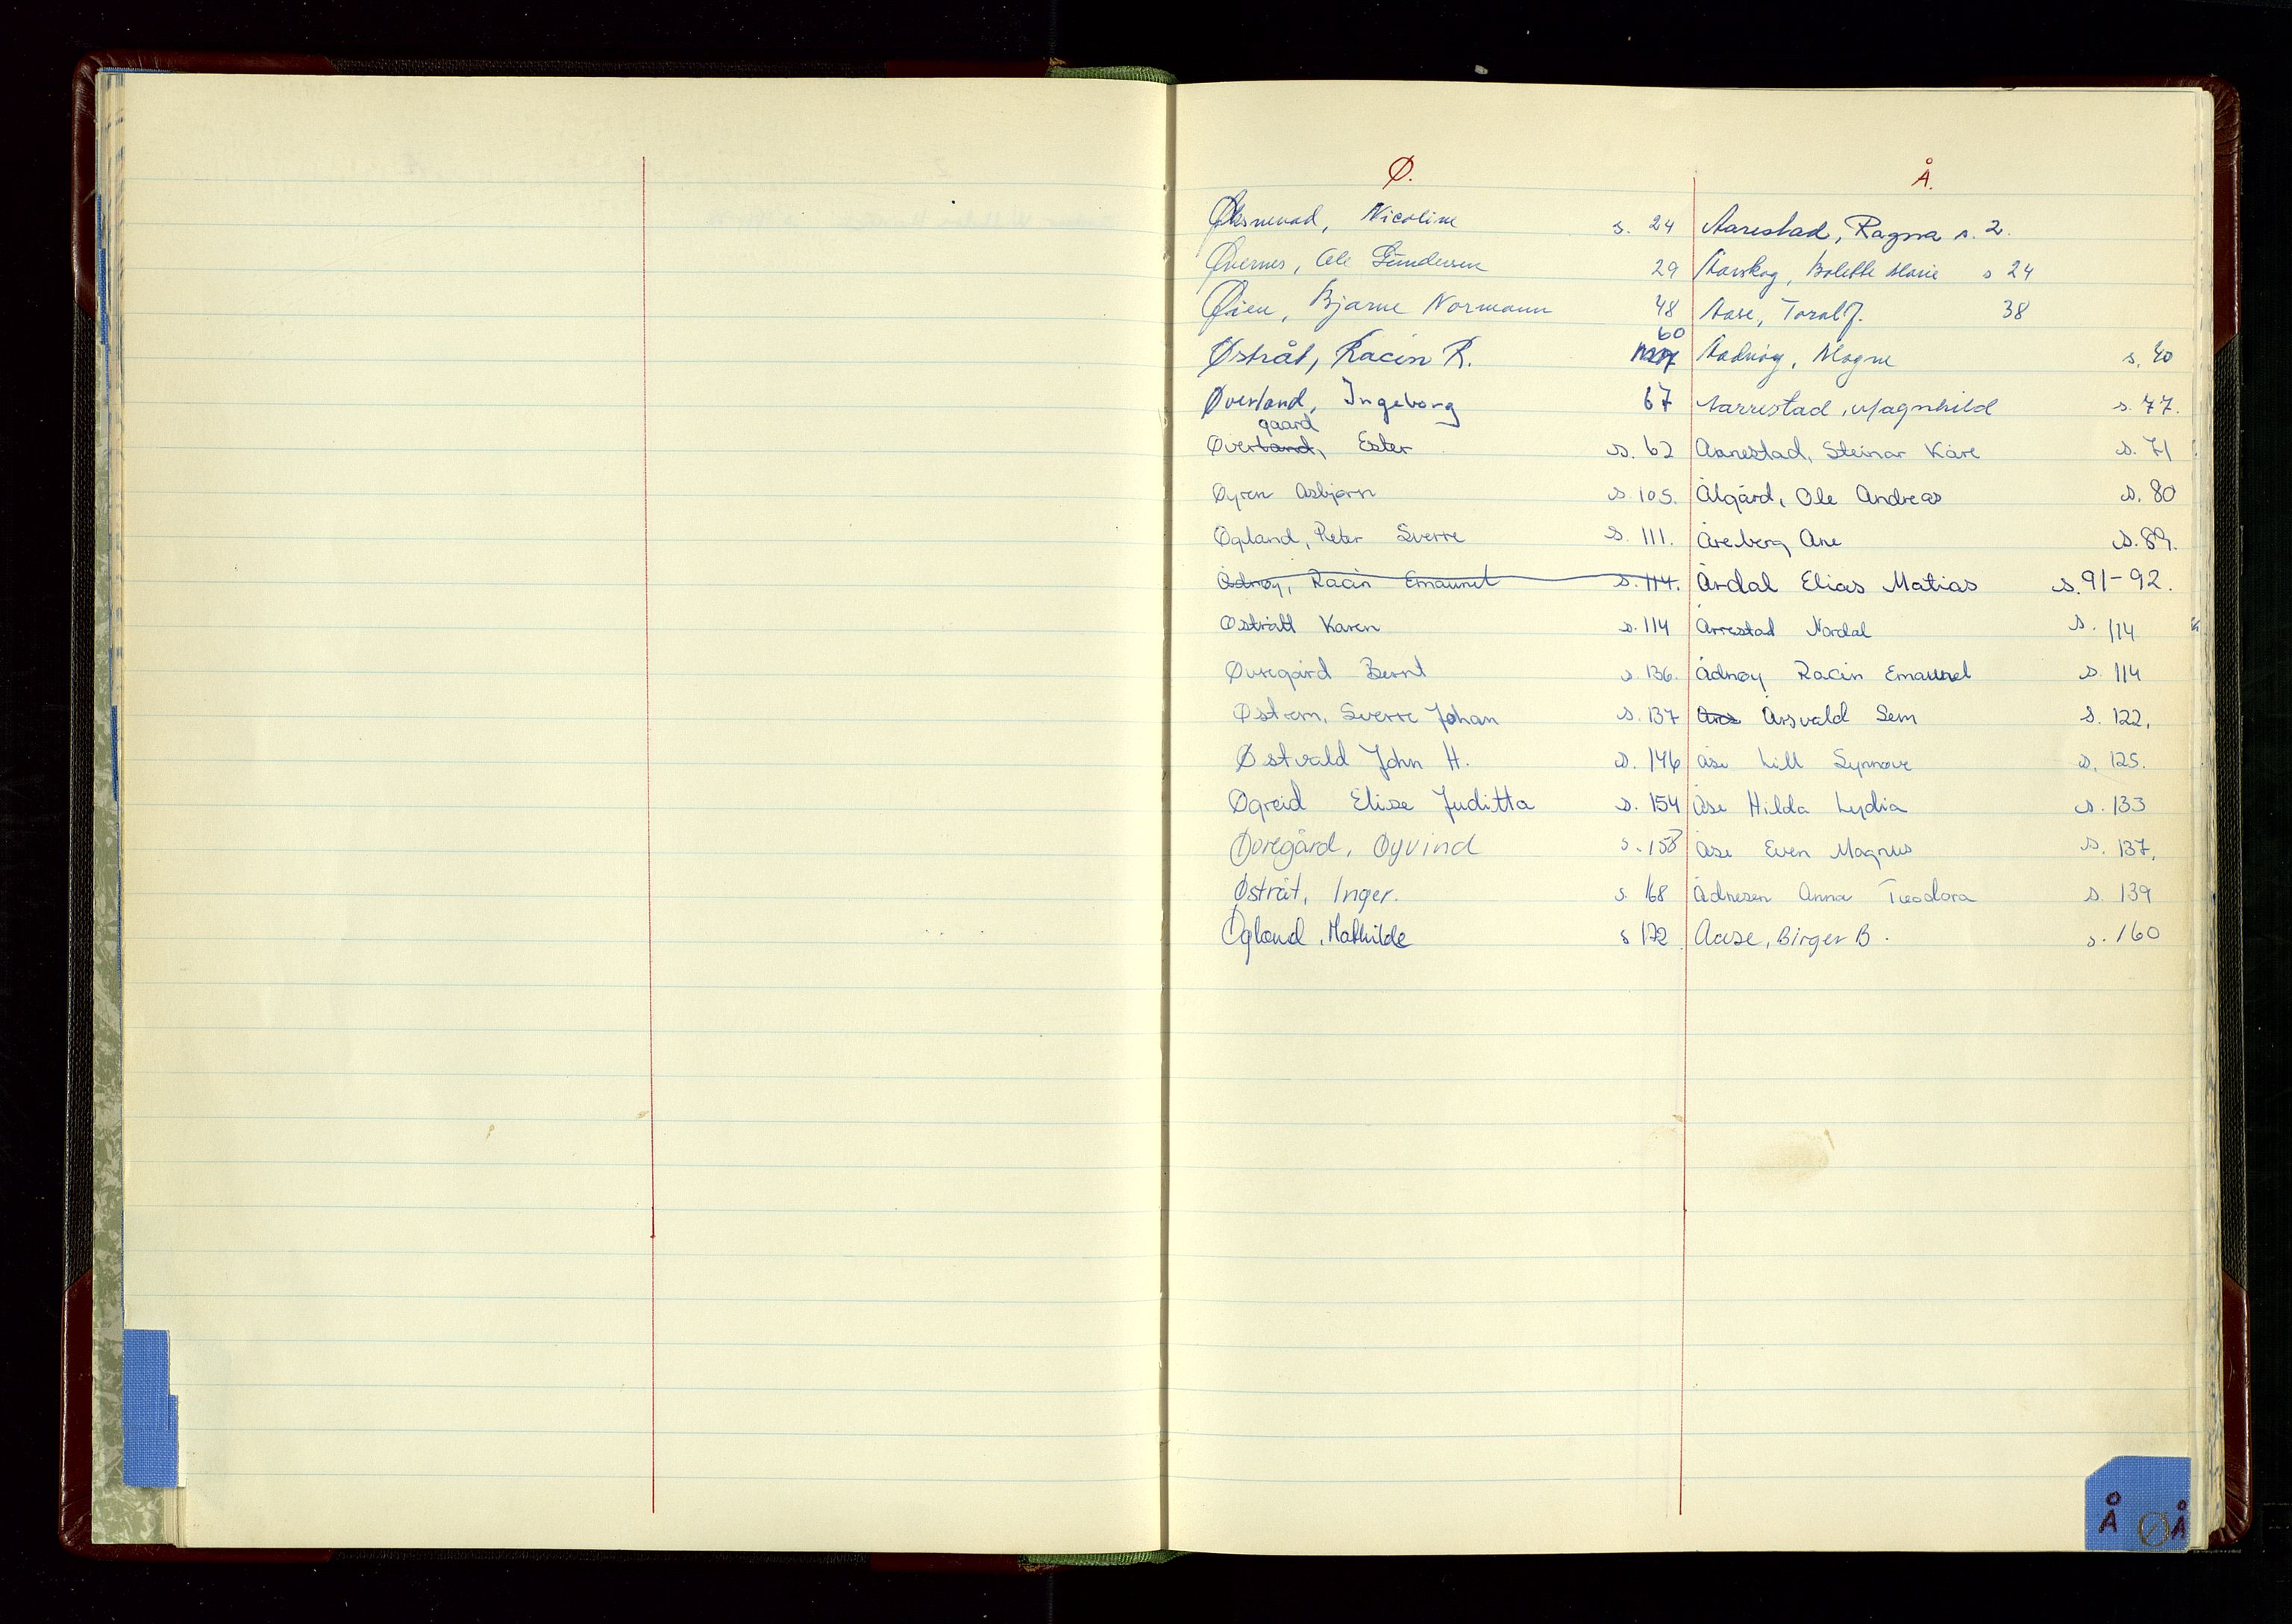 Ø.
Øksnevad, Nicoline s. 24
Øvernes, Ole Gundersen 29
Øien, Bjarne Normann 48
60
Østråt, Racin R.
Øverland, Ingeborg 67
gaard
Øverland, Ester s. 62
Øyren Asbjørn s. 105.
Øgland, Peter Sverre s. 111.
Ådnøy, Racin Emaunel s. 114.
Østrått Karen s. 114
Øvregård Bernt s. 136.
Østrem, Sverre Johan s. 137
Østvald John H. s. 146
Øgreid Elise Juditta s. 154
Øvregård, Øyvind s. 158
Østråt, Inger. s. 168
Øgland, Mathilde s 172
Å.
Aarestad, Ragna s. 2.
Aarskog, Bolette Marie s 24
Aase, Toralf. 38
Aadnøy, Magne s. 40
Aarrestad, Magnhild s. 77.
Aanestad, Steinar Kåre s. 71
Ålgård, Ole Andreas s. 80
Åreberg Ane s. 89.
Årdal Elias Matias s. 91-92.
Årrestad Nordal s. 114
Ådnøy Racin Emaunel s. 114
Årsvald Sem s. 122.
Åse Lill Synnøve s. 125.
Åse Hilda Lydia s. 133
Åse Even Magnus s. 137.
Ådnesen Anna Teodora s. 139
Aase, Birger B. s. 160
Å Ø Å